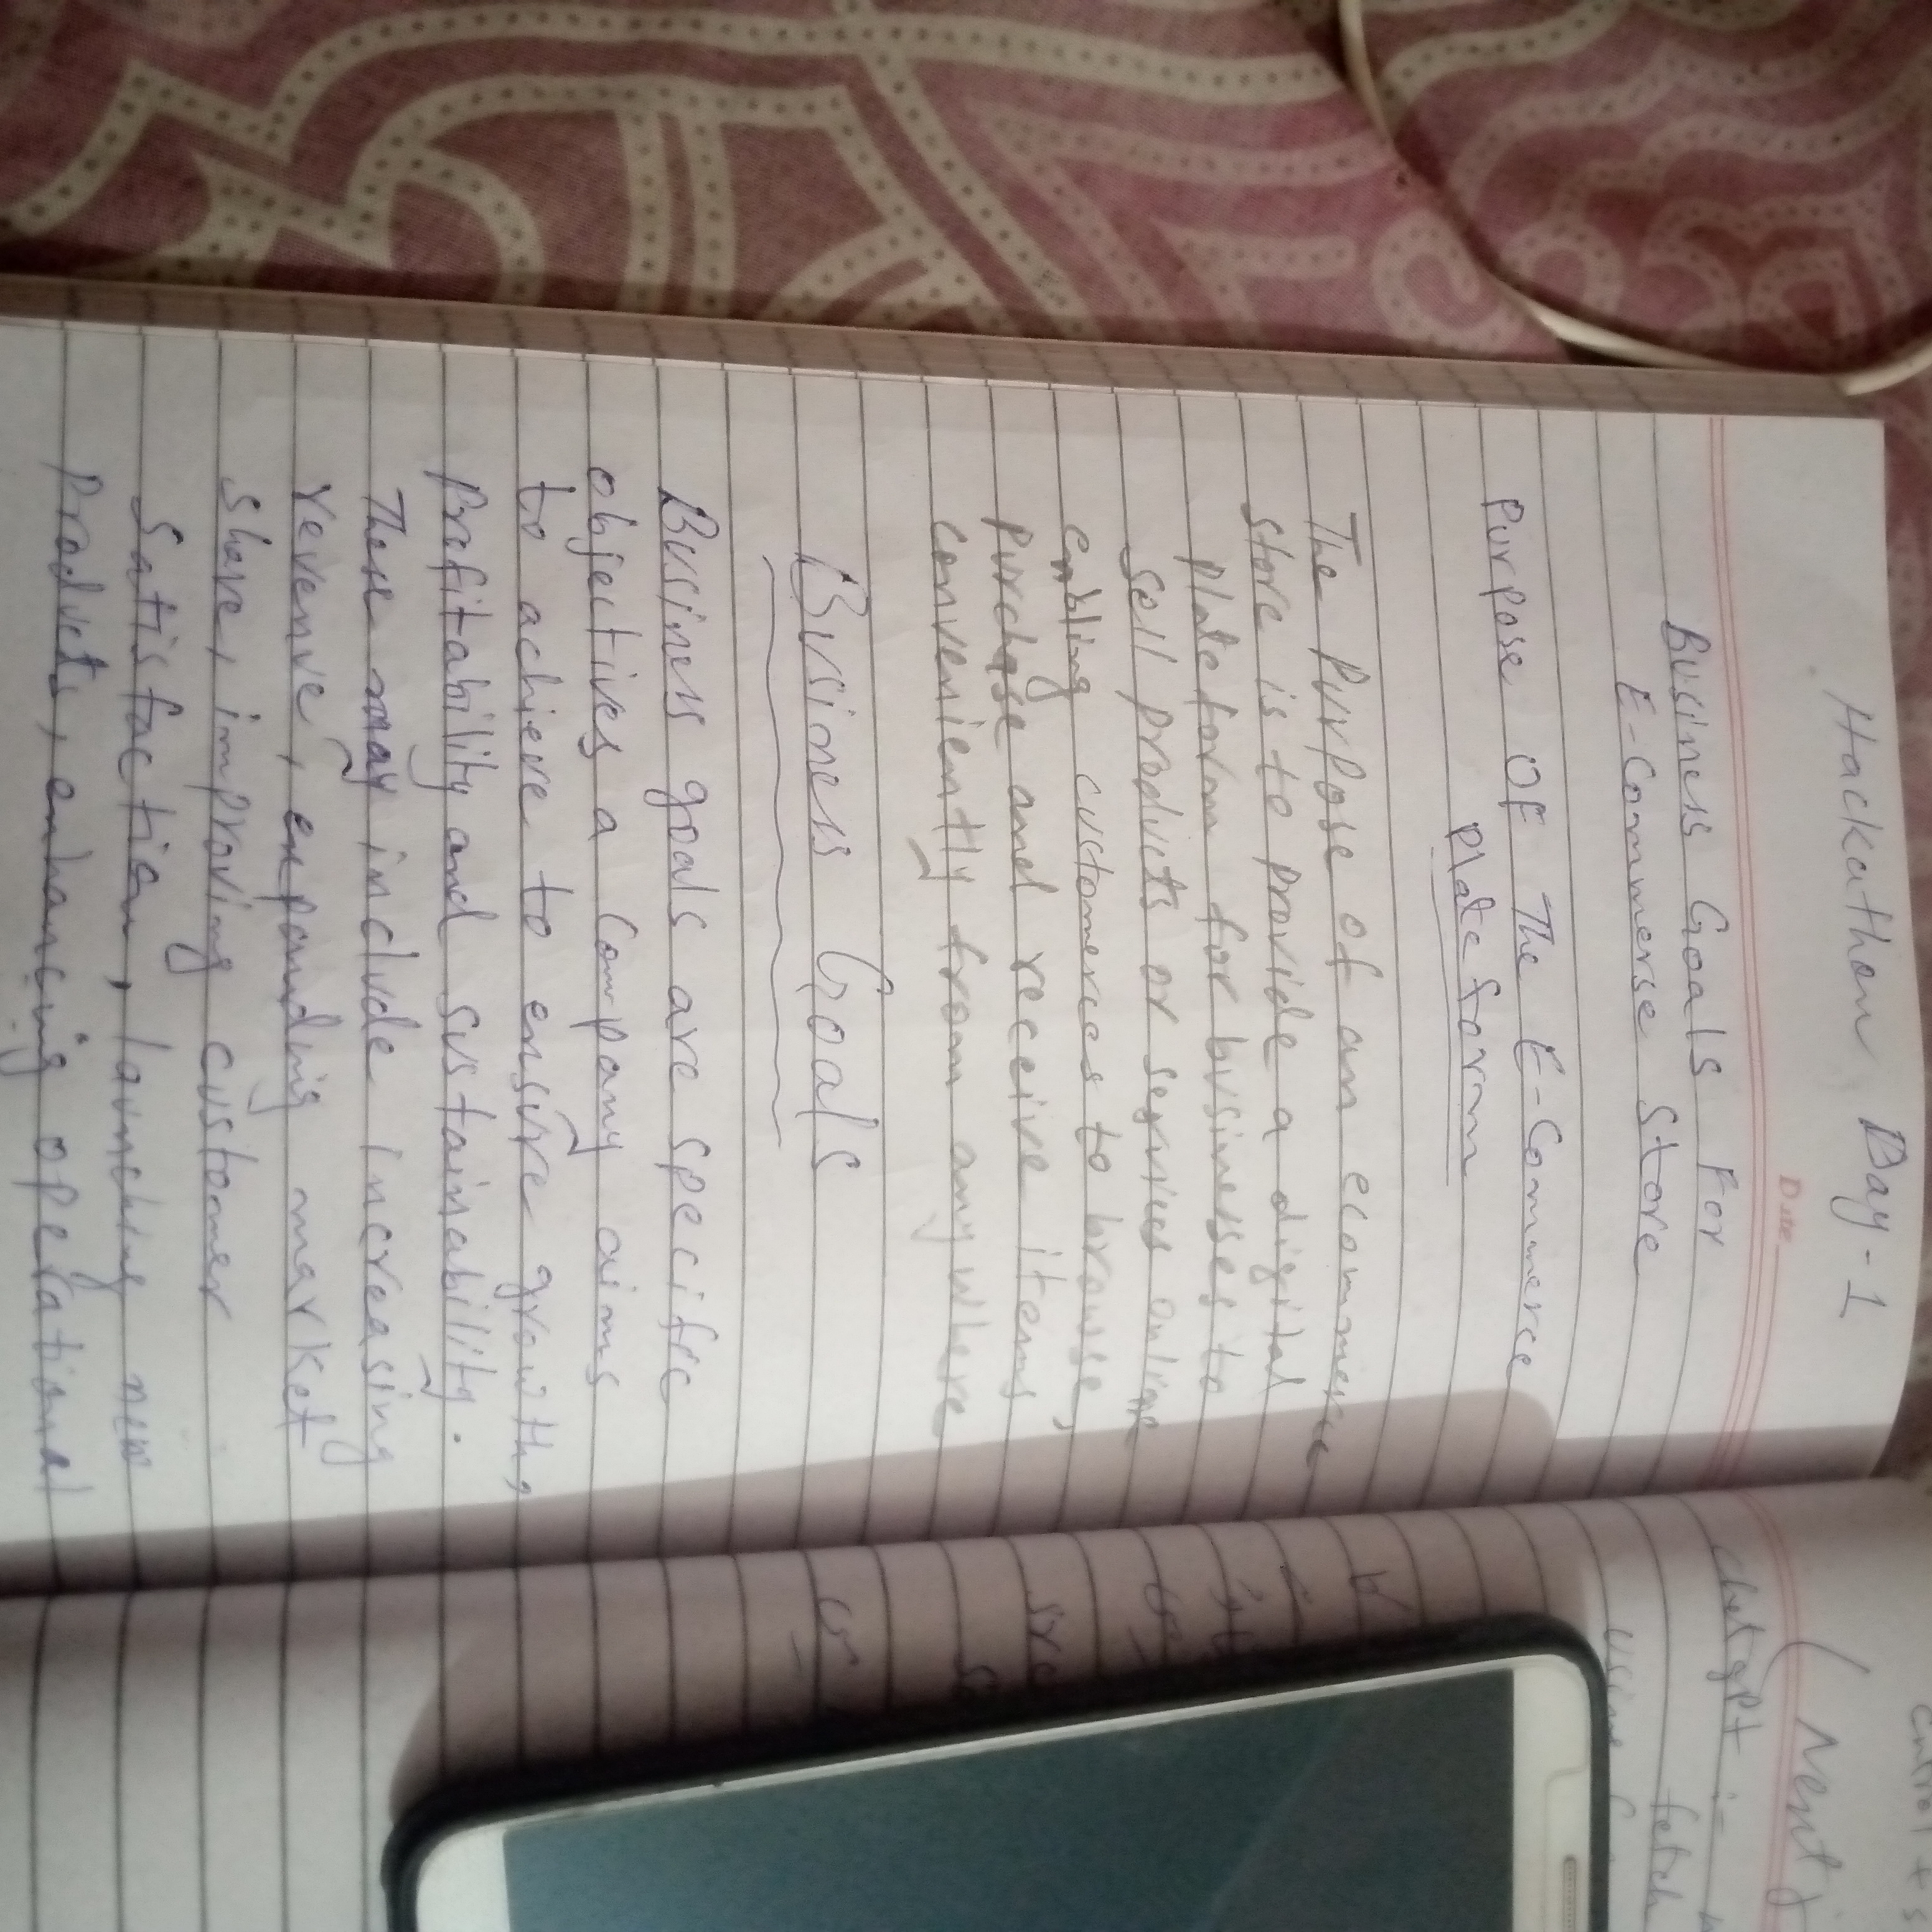 Hackathon Day-1
Date
Business Goals For
E-Commerse Store
Purpose OF The E-Commerce
Plateform
The Purpose of an ecommerce
store is to provide a digital
plateform for businesses to
sell products or services online
enabling customeres to browse,
purchase and receive items
conveniently from anywhere
Business Goals
Business goals are specific
objectives a Company aims
to achieve to ensure growth,
Profitability and sustainability.
These may include Increasing
revenue, expanding market
share, improving customer
Satisfaction, launching new
Products, enhancing operational
(Next
fetch
using